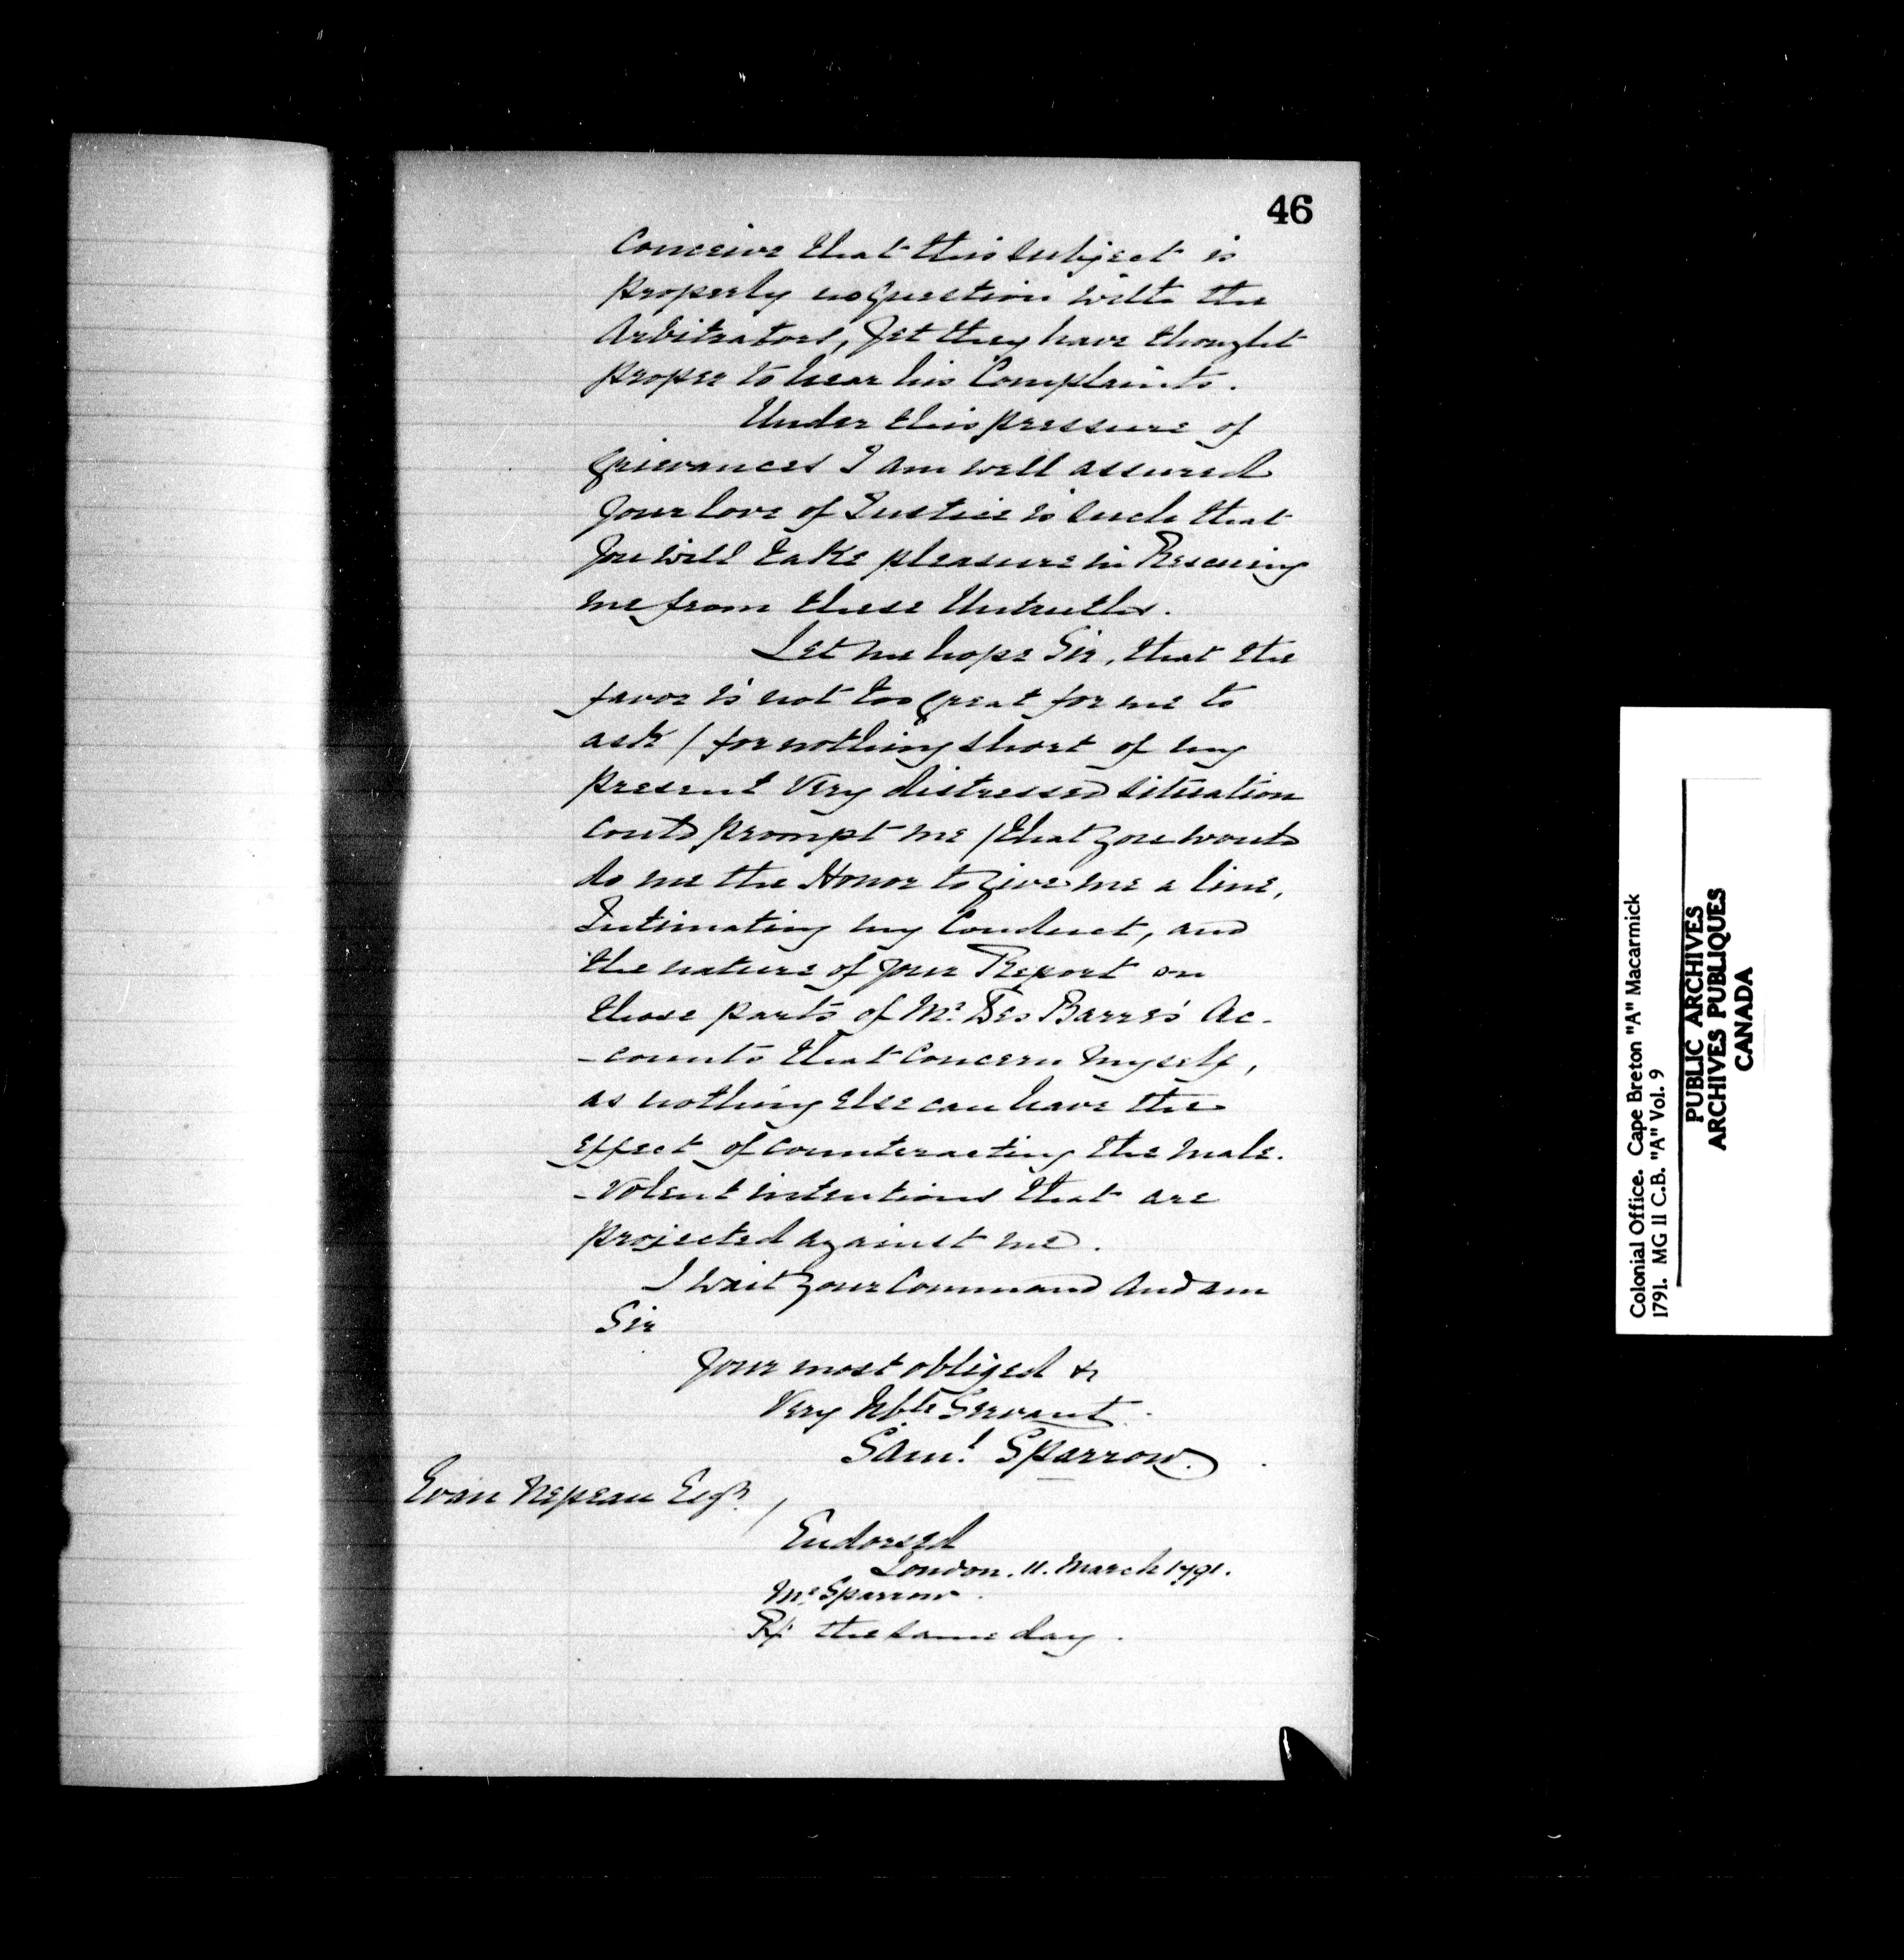 46
Conceive that this subject is
properly no question with the
Arbitrators, yet they have thought
proper to hear his Complaints.
Under this pressure of
grievances I am well assured
your love of Justice is such that
you will take pleasure in Rescuing
me from these Untruths.
Let me hope Sir, that the
favor is not too great for me to
ask / for nothing short of my
present very distressed situation
could prompt me / that you would
do me the Honor to give me a line,
Intimating my Conduct, and
the nature of your Report on
those parts of Mr. Des Barres' Ac-
-counts that concern myself,
as nothing else can have the
effect of counteracting the male-
-volent intentions that are
projected against me.
I wait your Command and am
Sir
Your most obliged &
Very hble Servant.
Saml. Sparrow.
Evan Nepean Esqr. /
Endorsed
London. 11. March 1791.
Mr. Sparrow.
Rx. the same day.
Colonial Office. Cape Breton "A" Macarmick
1791. MG 11 C.B. "A" Vol. 9
PUBLIC ARCHIVES
ARCHIVES PUBLIQUES
CANADA